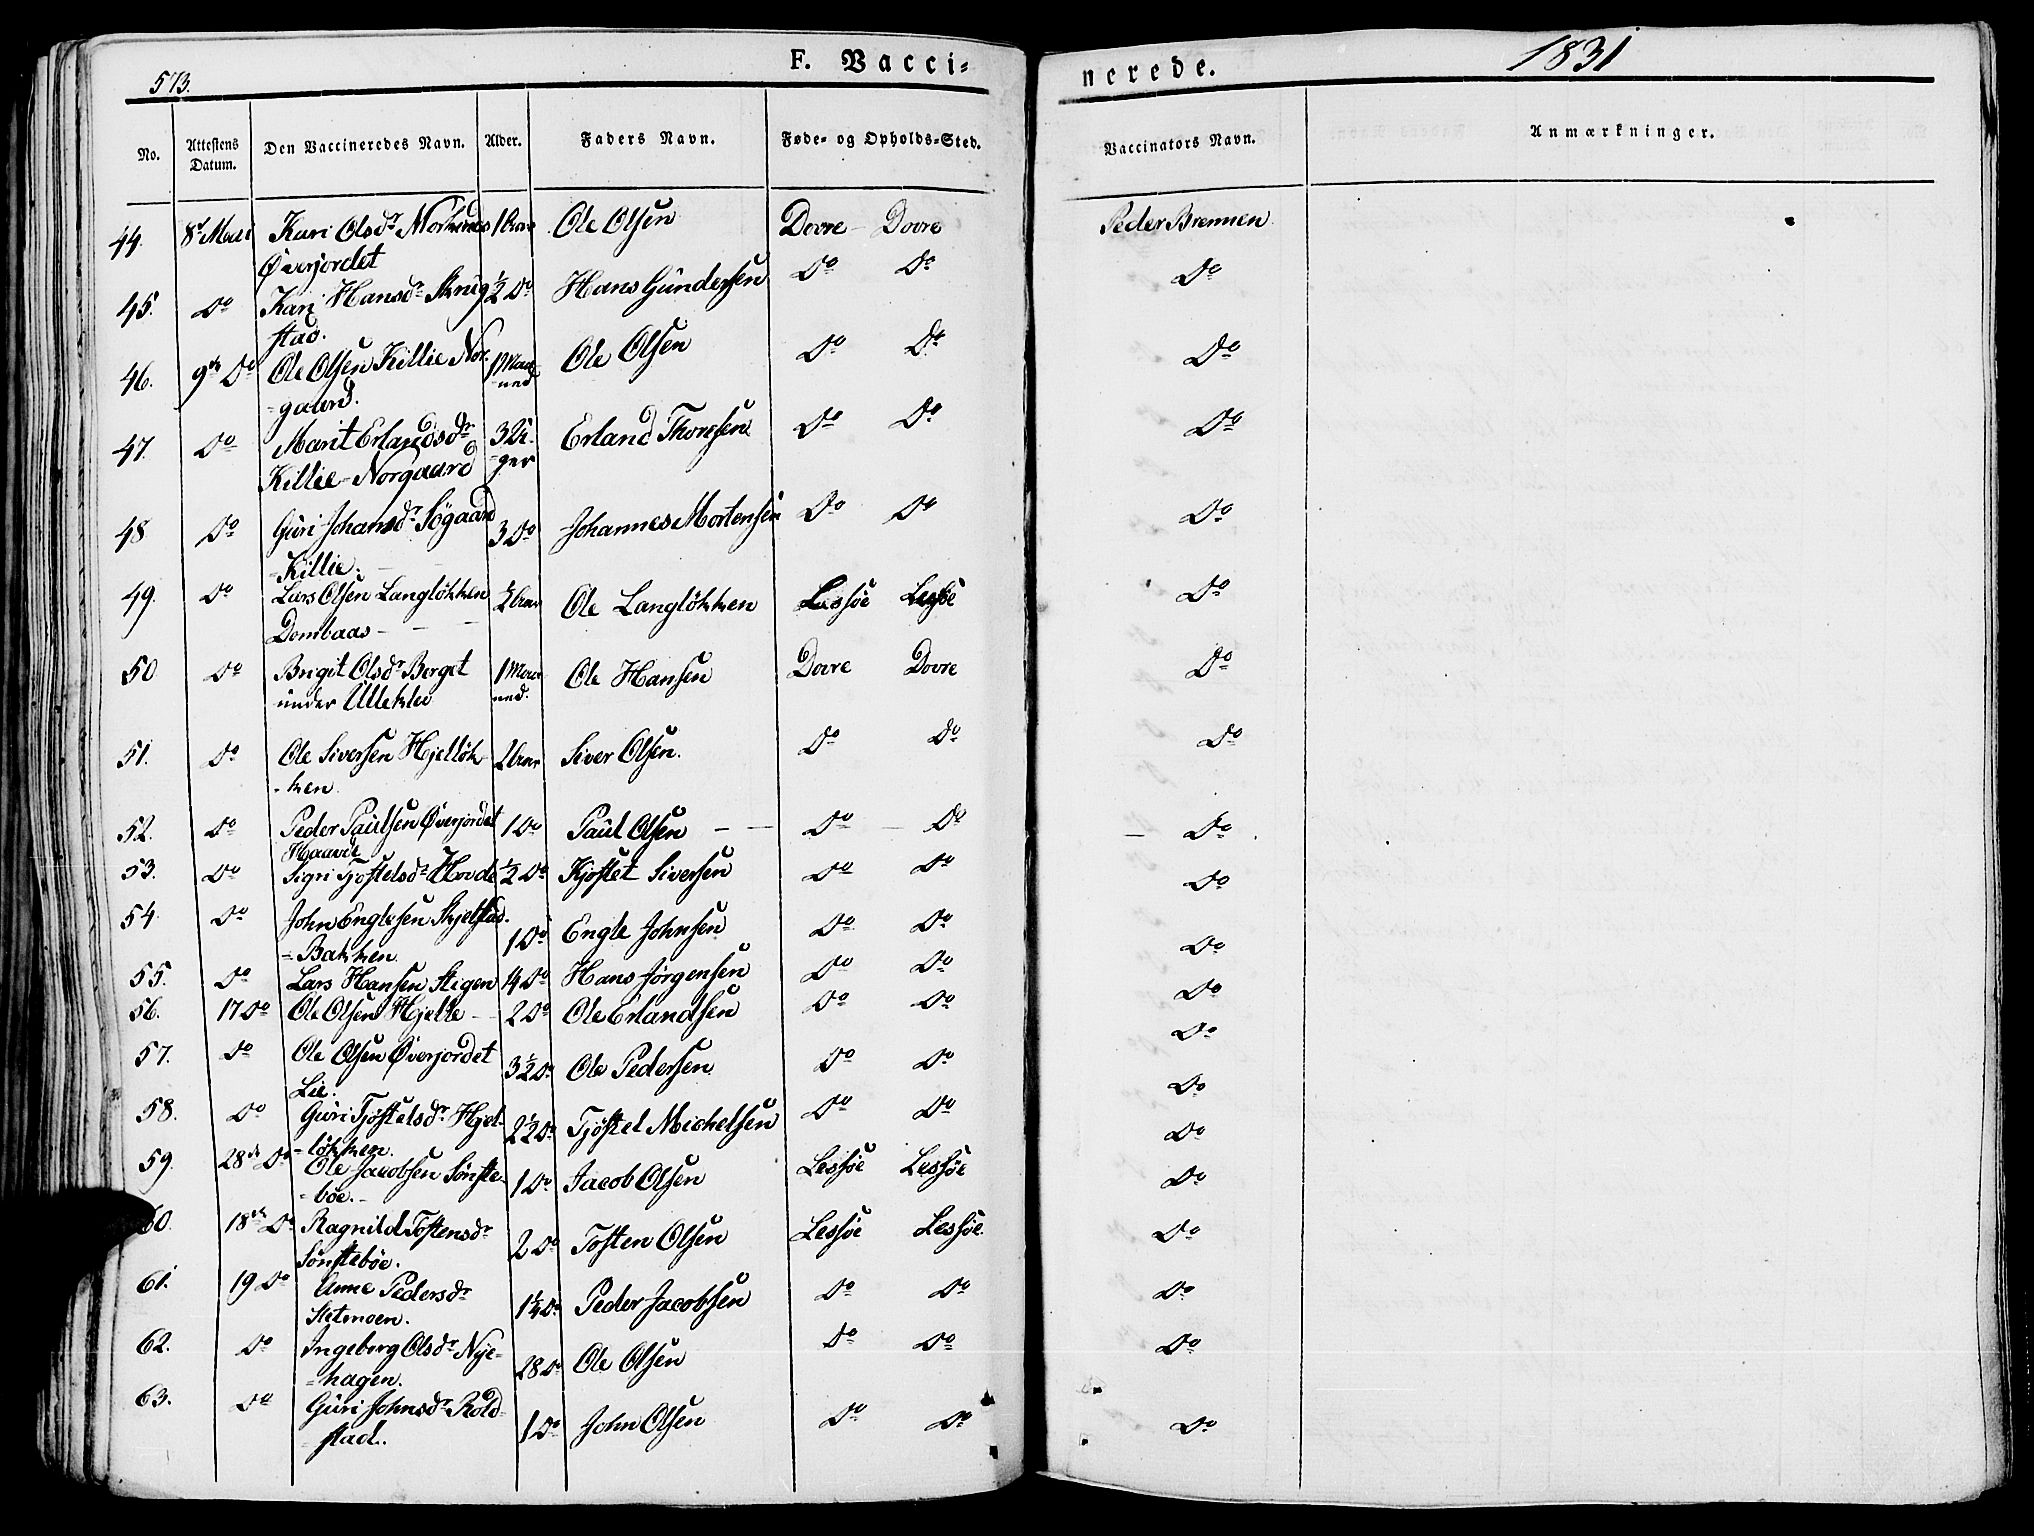 573.
F. Vacci-
nerede.
1831
No. Attestens Datum. Den Vaccineredes Navn. Alder. Faders Navn. Føde- og Opholds-Sted. Vaccinators Navn. Anmærkninger.
44. 8de Mai Kari Olsdr 1 Aar Ole Olsen Dovre - Dovre Peder Brennen
Øverjordet
45. Do Kari Hansdr Skrug ½ Do Hans Gundersen Do Do Do
stad.
46. 9de Do Ole Olsen Killie Nor- 1 Maa- Ole Olsen Do Do Do
=gaard. =ned
47. Do Marit Erlandsdr 3 Uü- Erland Thoresen Do Do Do
Killie-Norgaard =ger
48 Do Guri Johansdr Søgaard 3 Do Johannes Mortensen Do Do Do
=Killie. - -
49. Do Lars Olsen Langløkken ½ Aar Ole Langløkken Lessøe Lessøe Do
Dombaas - - -
50 Do Brigit Olsdr Berget 1 Maa- Ole Hansen Dovre Dovre Do
under Ullekleː ned.
51. Do Ole Siversen Hjelløk- 2 Aar Siver Olsen. Do Do Do
=ken.
52. Do Peder Paulsen Øverjordet 1 Do Paul Olsen - - Do - Do - Do.
Haavel
53. Do Sigri Tjøstelsdr Hovde ½ Do Kjøstel Siversen Do Do Do
54 Do John Englesen Skjelstad. 1 Do Engle Johnsen Do Do Do
=Bakken.
55. Do Lars Hansen Stigen ¼ Do Hans Jørgensen Do Do Do
56. 17 Do Ole Olsen Hjelle - - 2 Do Ole Erlandsen Do Do Do
57. Do Ole Olsen Øverjordet 3½ Do Ole Pedersen Do Do Do
Lie.
58. Do Guri Tjøstelsdr Hjel- 2½ Do Tjøstel Michelsen Do Do Do
=løkken.
59. 28de Do Ole Jacobsen Sønste- 1 Do Jacob Olsen Lessøe Lessøe Do
=bøe.-
60. 18de Do Ragnild Tostensdr 2 Do Tosten Olsen Lessøe Lessøe. Do
Sønstebøe.
61. 19 Do Anne Pedersdr 1¼ Do Peder Jacobsen Do Do Do
Stetmoen.
62. Do Ingeborg Olsdr Nye- 28 Do Ole Olsen Do Do Do
=hagen.
63. Do Guri Johnsdr Rold- 1 Do John Olsen Do Do Do
=stad.